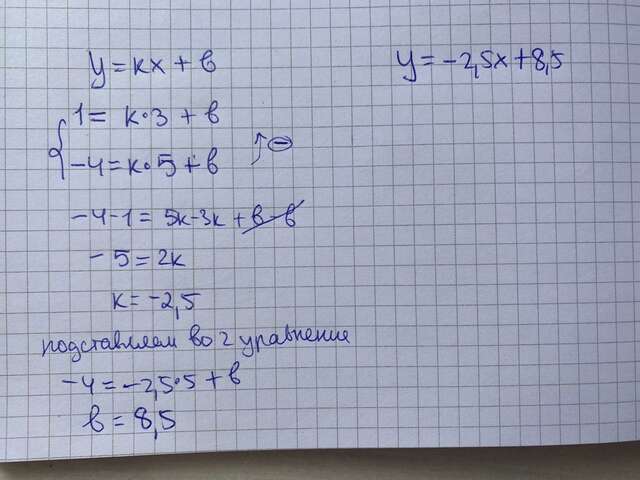 y = kx + b
y = -2,5x + 8,5
1 = k·3 + b
-4 = k·5 + b
-4-1 = 5k-3k + b-b
-5 = 2k
k = -2,5
подставляем во 2 уравнение
-4 = -2,5·5 + b
b = 8,5